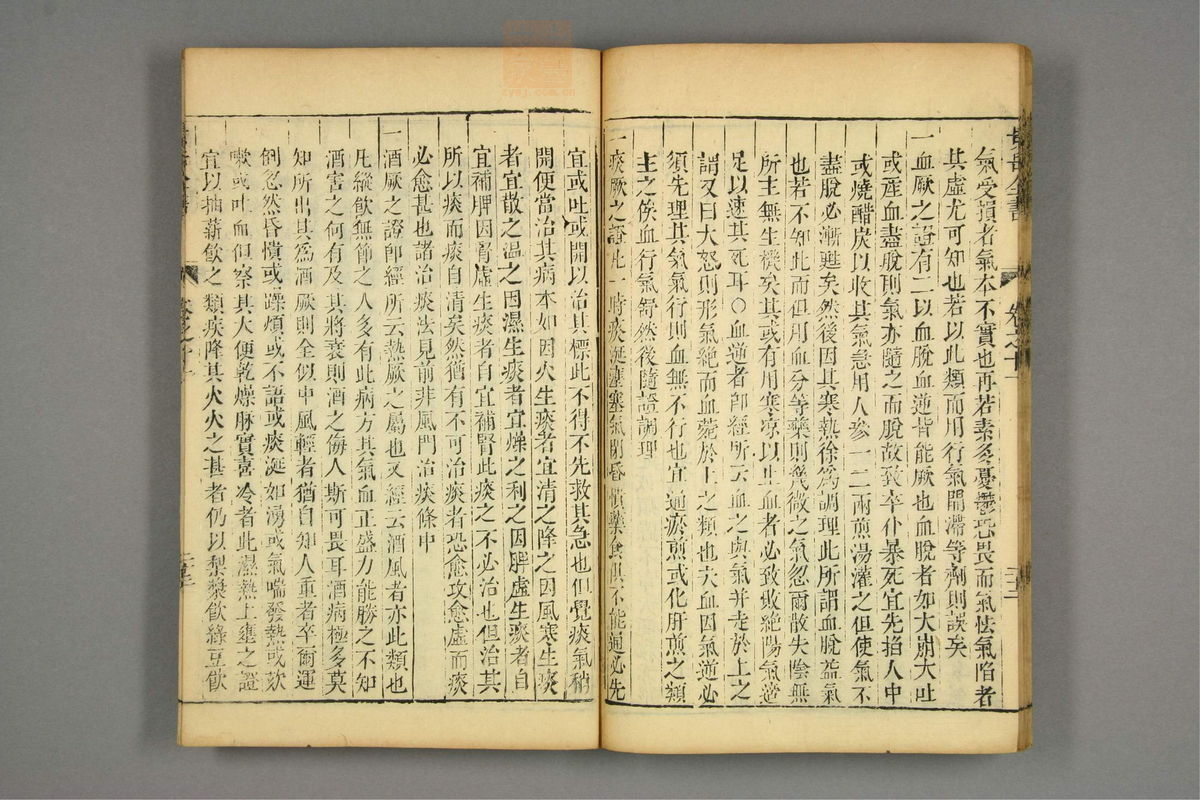 氣受損者氣本不實也再若素多憂鬱恐畏而氣怯氣陷者
其虛尤可知也若以此類而用行氣開滯等劑則誤矣
一血厥之證有二以血脫血逆皆能厥也血脫者如大崩大吐
或產血盡脫則氣亦隨之而脫故致卒仆暴死宜先掐人中
或燒醋炭以收其氣急用人參一二兩煎湯灌之但使氣不
盡脫必漸甦矣然後因其寒熱徐為調理此所謂血脫益氣
也若不知此而但用血分等藥則幾微之氣忽爾散失陰無
所主無生機矣其或有用寒凉以止血者必致敗絶陽氣適
足以速其死耳○血逆者卽經所云血之與氣并走於上之
謂又曰大怒則形氣絶而血菀於上之類也夫血因氣逆必
須先理其氣氣行則血無不行也宜通瘀煎或化肝煎之類
主之俟血行氣舒然後隨證調理
一痰厥之證凡一時痰涎壅塞氣閉昏憒藥食俱不能通必先
宜或吐或開以治其標此不得不先救其急也但覺痰氣稍
開便當治其病本如因火生痰者宜清之降之因風寒生痰
者宜散之温之因濕生痰者宜燥之利之因脾虛生痰者自
宜補脾因腎虛生痰者自宜補腎此痰之不必治也但治其
所以痰而痰自清矣然猶有不可治痰者恐愈攻愈虛而痰
必愈甚也諸治痰法見前非風門治痰條中
一酒厥之證卽經所云熱厥之屬也又經云酒風者亦此類也
凡縱飲無節之人多有此病方其氣血正盛力能勝之不知
酒害之何有及其將衰則酒之侮人斯可畏耳酒病極多莫
知所出其為酒厥則全似中風輕者猶自知人重者卒爾運
倒忽然昏憒或躁煩或不語或痰涎如湧或氣喘發熱或欬
嗽或吐血但察其大便乾燥脈實喜冷者此濕熱上壅之證
宜以抽薪飲之類疾降其火火之甚者仍以梨漿飲綠豆飲